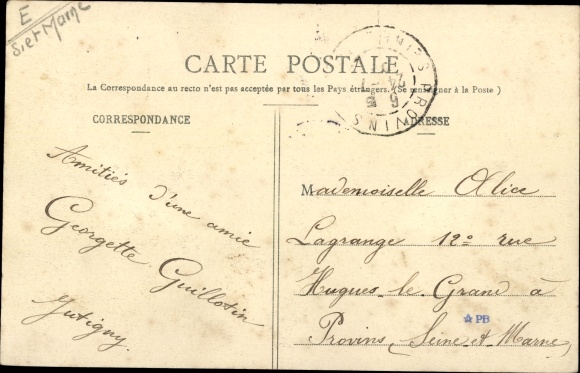 E
S. et Marne
CARTE POSTALE
La Correspondance au recto n'est pas acceptée par tous les Pays étrangers. (Se renseigner à la Poste)
CORRESPONDANCE
Amitiés d'une amie
Georgette Guillotin
Jutigny.
ADRESSE
Mademoiselle Alice
Lagrange 12º rue
Hugues le Grand à
Provins, Seine et Marne
PROVINS
PB